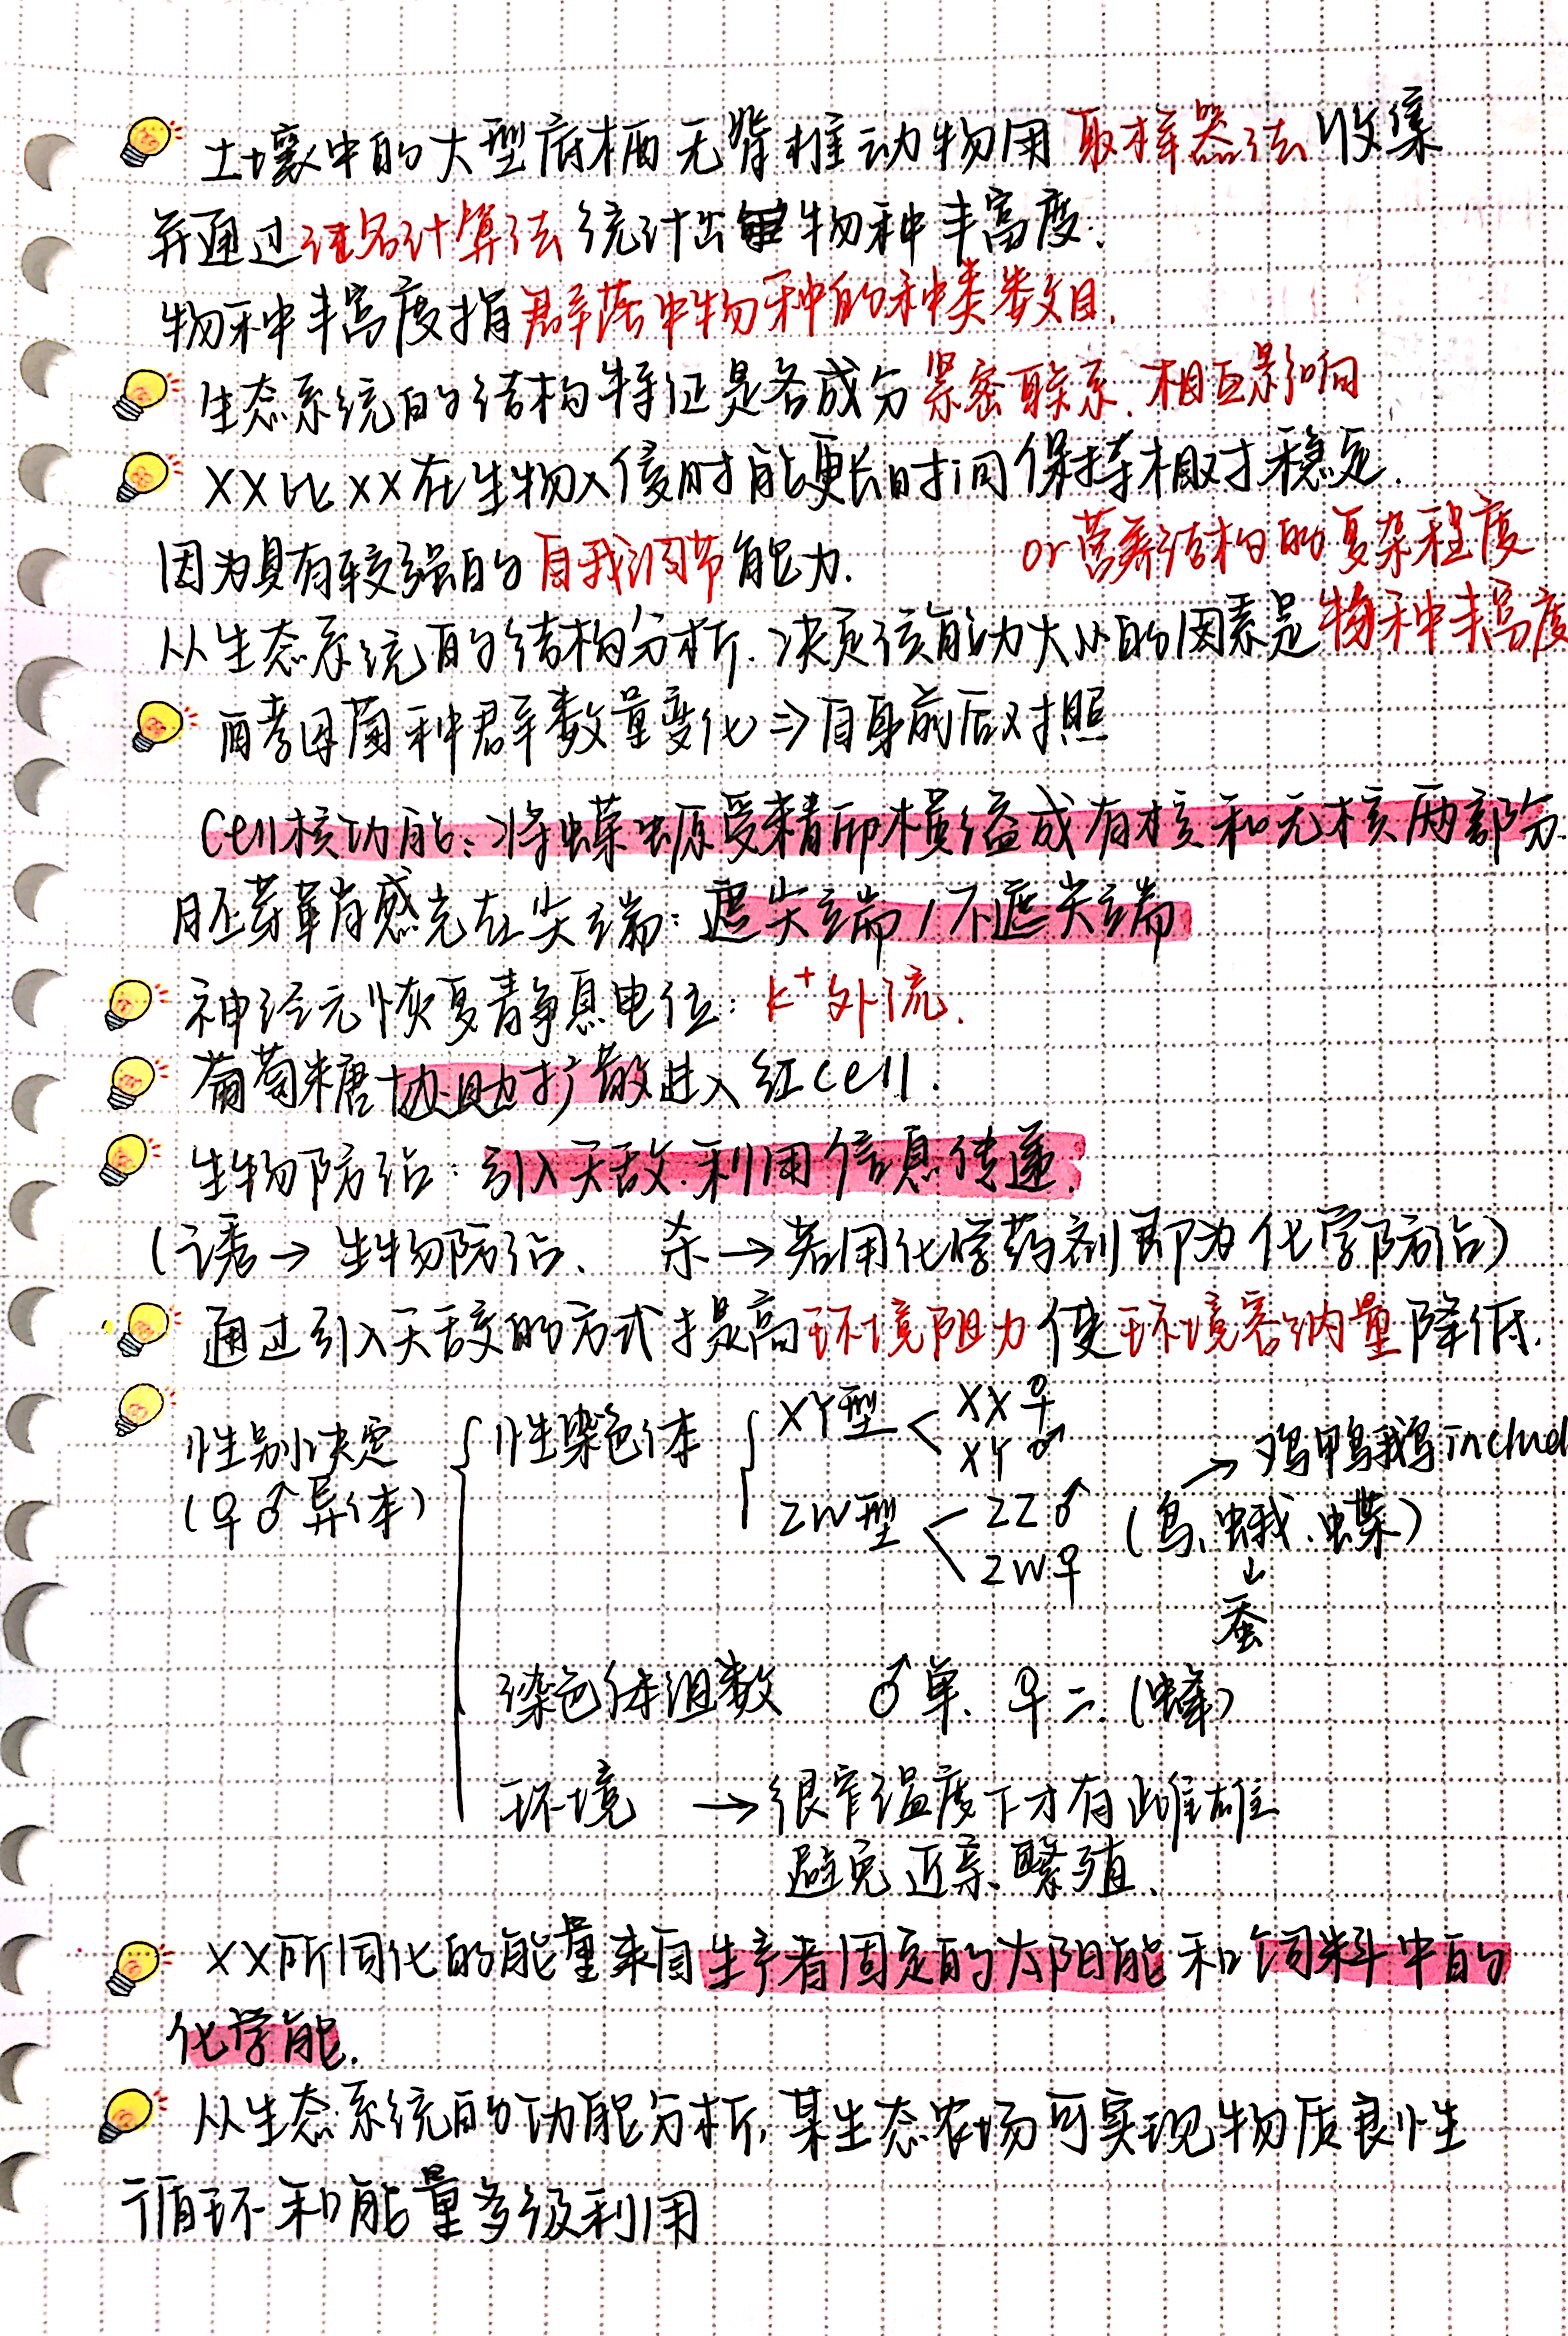 土壤中的大型底栖无脊椎动物用取样器法收集
并通过记名计算法统计出物种丰富度.
物种丰富度指群落中物种的种类数目.
生态系统的结构特征是各成分紧密联系.相互影响
XX比XX在生物入侵时能更长时间保持相对稳定.
因为具有较强的自我调节能力. or营养结构的复杂程度
从生态系统的结构分析.决定该能力大小的因素是物种丰富度
酵母菌种群数量变化⇒自身前后对照
Cell核功能:将蝾螈受精卵横缢成有核和无核两部分.
胚芽鞘感光在尖端:遮尖端/不遮尖端
神经元恢复静息电位:K⁺外流.
葡萄糖协助扩散进入红cell.
生物防治:引入天敌.利用信息传递.
(诱→生物防治. 杀→若用化学药剂即为化学防治)
通过引入天敌的方式提高环境阻力使环境容纳量降低.
性别决定
(♀♂异体)
性染色体
XY型 < XX♀
XY♂
ZW型 < ZZ♂
ZW♀
(鸟、蛾、蝶)
→鸡鸭鹅includ
↓
蚕
染色体组数 ♂单. ♀二.(蜂)
环境 → 很窄温度下才有雌雄
避免近亲繁殖.
XX所同化的能量来自生产者固定的太阳能和饲料中的
化学能.
从生态系统的功能分析,某生态农场可实现物质良性
循环和能量多级利用